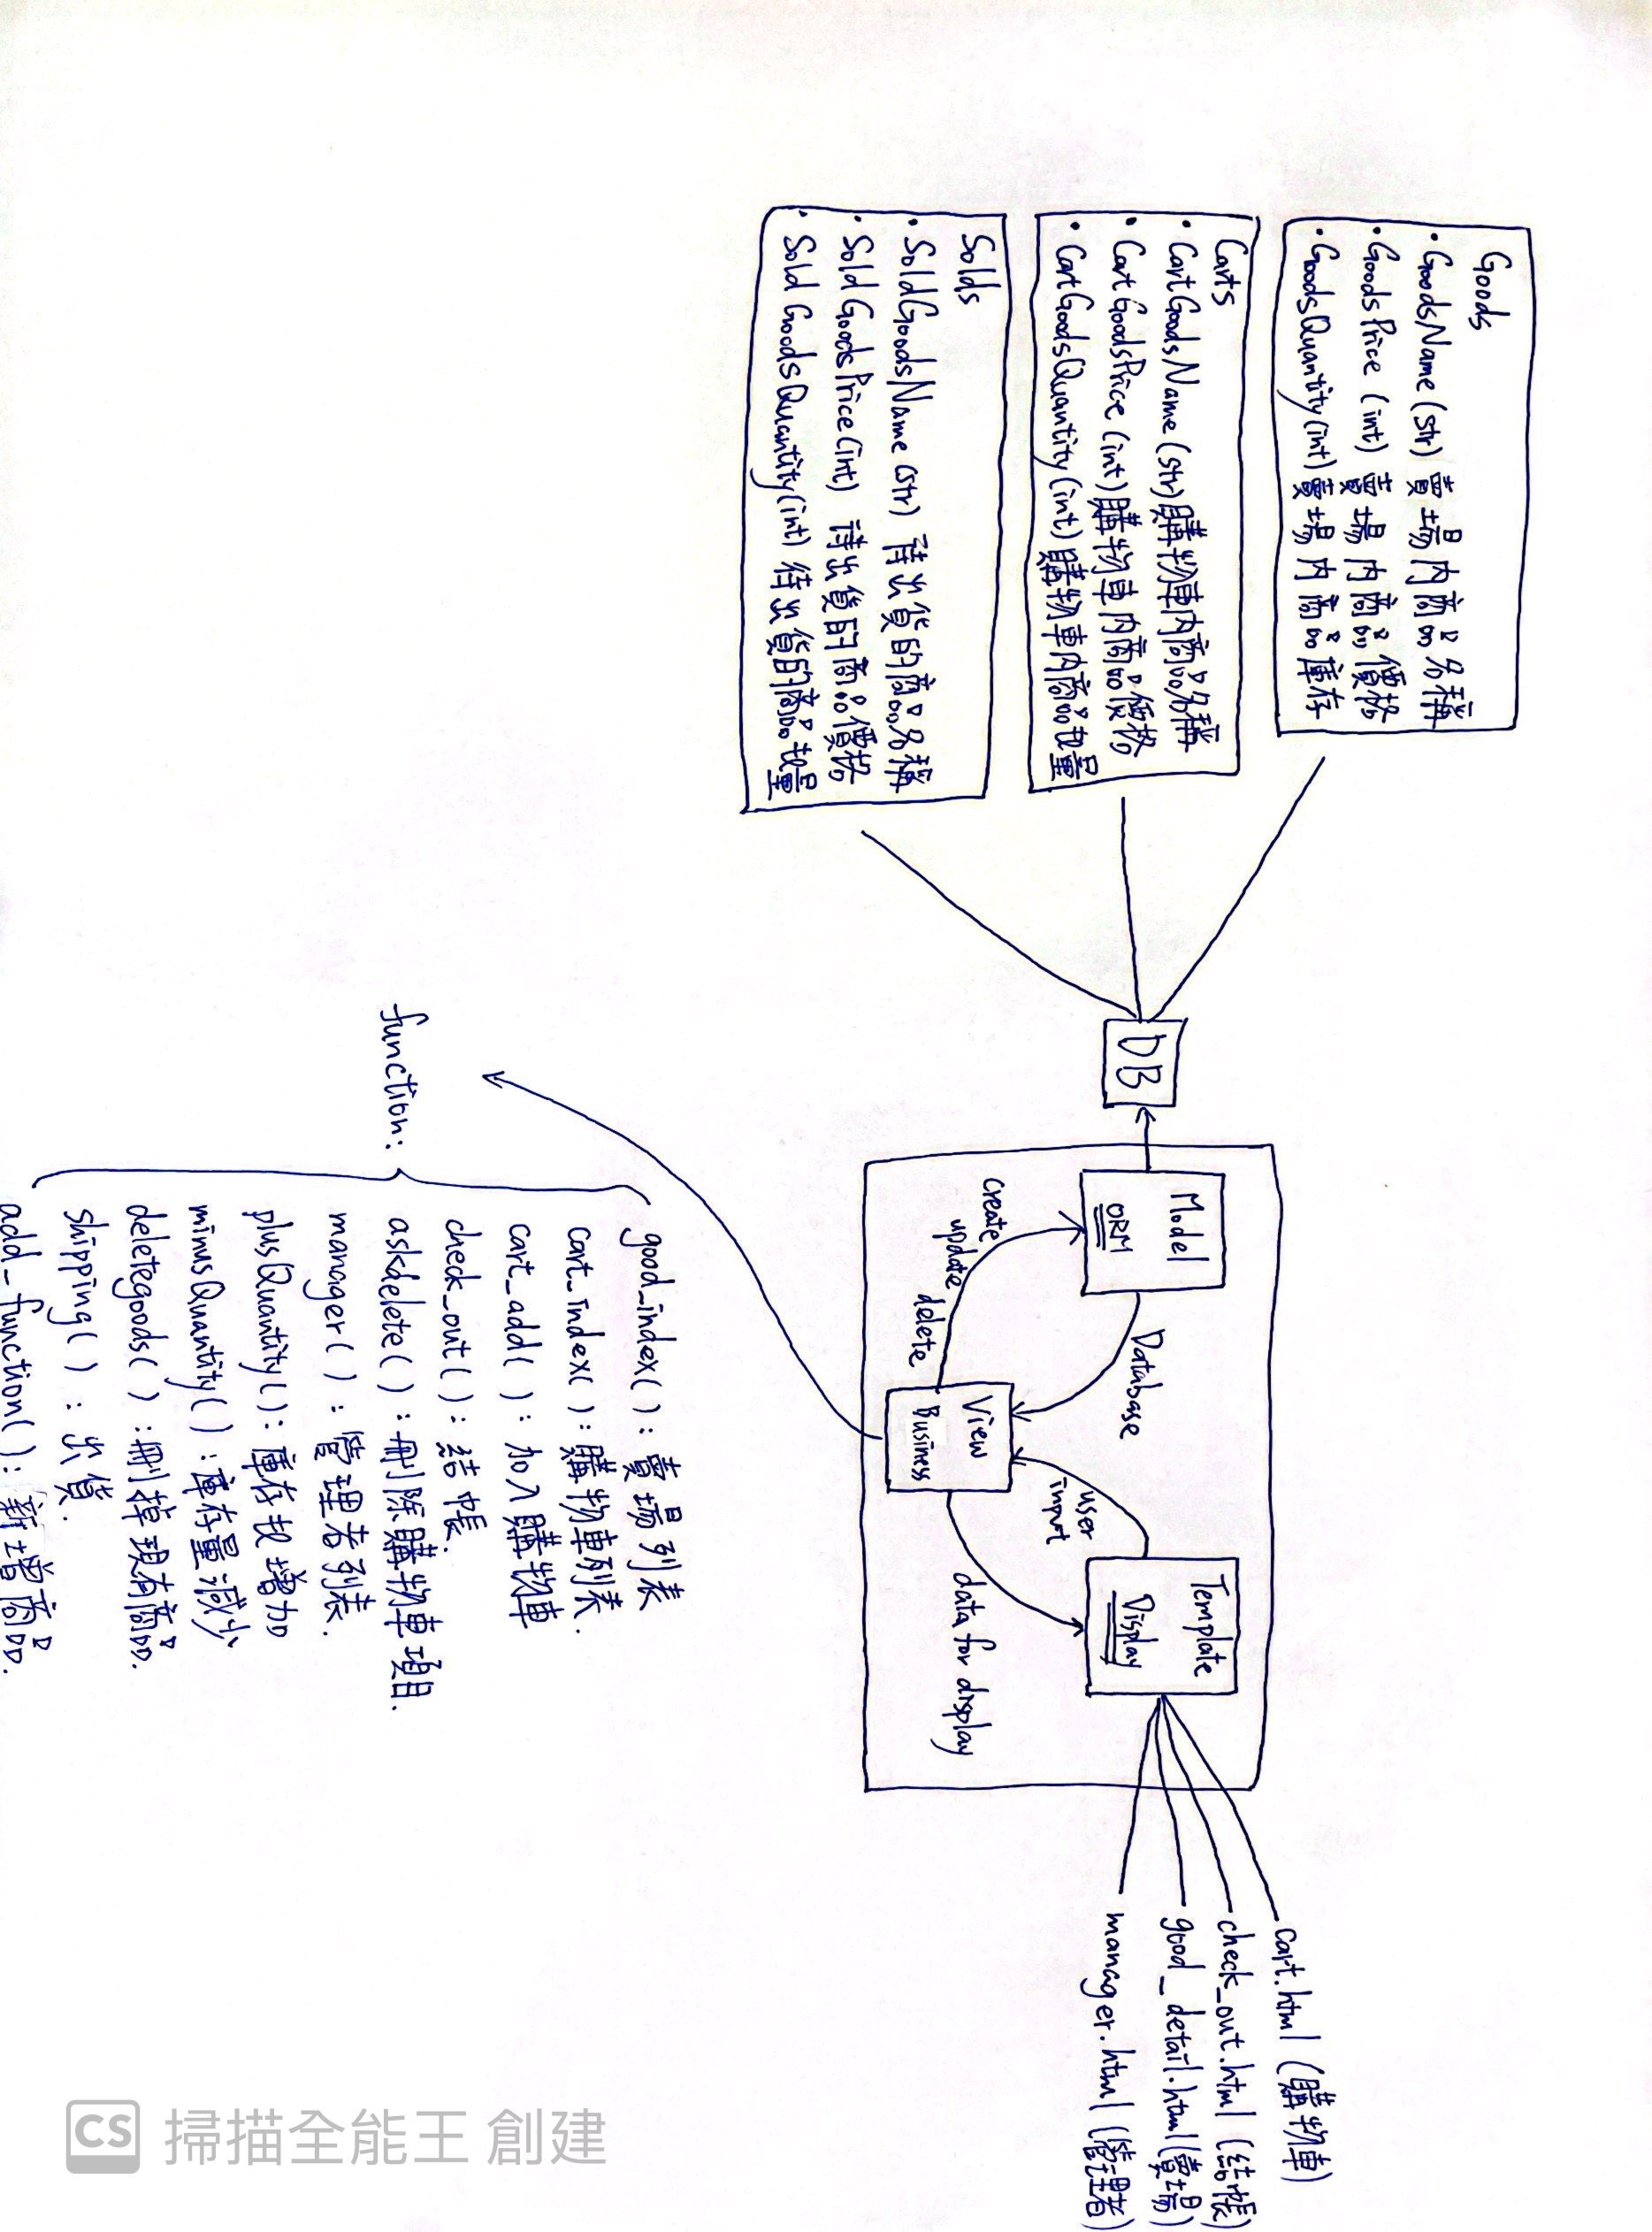 Goods
· GoodsName (str) 賣場內商品名稱
· GoodsPrice (int) 賣場內商品價格
· GoodsQuantity (int) 賣場內商品庫存
Carts
· CartGoodsName (str) 購物車內商品名稱
· CartGoodsPrice (int) 購物車內商品價格
· CartGoodsQuantity (int) 購物車內商品数量
Solds
· SoldGoodsName (str) 待出貨的商品名稱
· SoldGoodsPrice (int) 待出貨的商品價格
· SoldGoodsQuantity (int) 待出貨的商品数量
DB
Model
ORM
Database
Template
Display
user
input
create
update
delete
View
Business
data for display
cart.html (購物車)
check_out.html (結帳)
good_detail.html (賣場)
manager.html (管理者)
function:
good_index( ): 賣場列表
cart_index( ): 購物車列表.
cart_add( ): 加入購物車
check_out( ): 結帳.
askdelete( ): 刪除購物車項目.
manager( ): 管理者列表.
plusQuantity( ): 庫存数增加
minusQuantity( ): 庫存量減少
deletegoods( ): 刪掉現有商品.
shipping( ): 出貨.
add_function( ): 新增商品.
CS 掃描全能王 創建